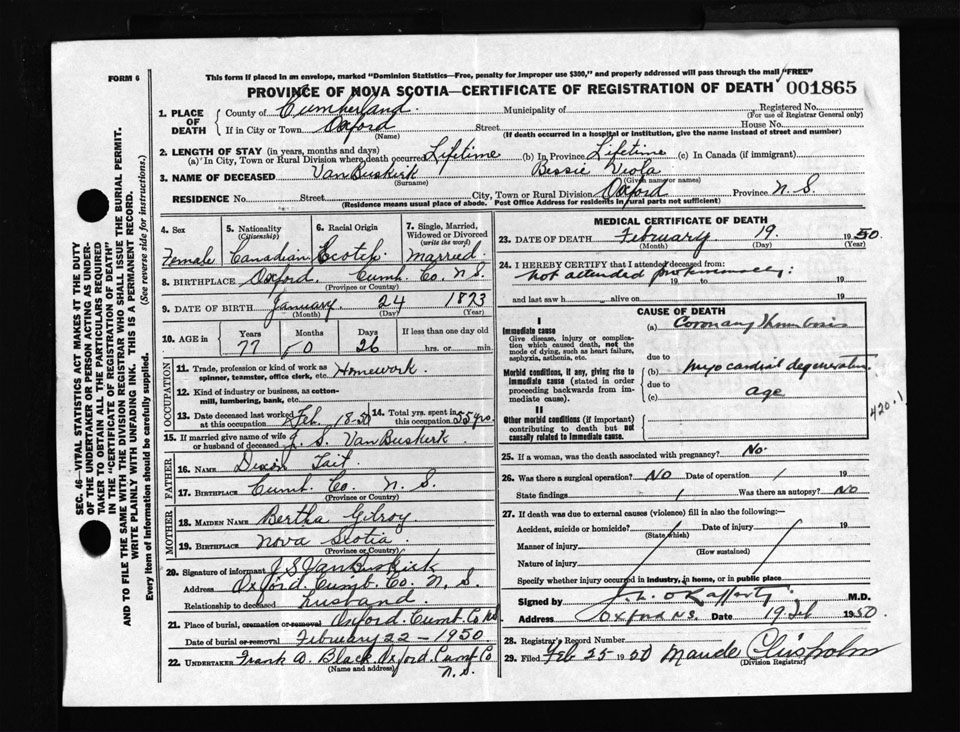 FORM 6
This form if placed in an envelope, marked "Dominion Statistics—Free, penalty for improper use $300," and properly addressed will pass through the mail "FREE"
PROVINCE OF NOVA SCOTIA—CERTIFICATE OF REGISTRATION OF DEATH 001865
1. PLACE OF DEATH
County of Cumberland. Municipality of Registered No.
(For use of Registrar General only)
If in City or Town Oxford Street House No.
(Name) (If death occurred in a hospital or institution, give the name instead of street and number)
2. LENGTH OF STAY (in years, months and days)
(a) In City, Town or Rural Division where death occurred Lifetime (b) In Province Lifetime (c) In Canada (if immigrant)
3. NAME OF DECEASED VanBuskirk Bessie Viola
(Surname) (Given name or names)
RESIDENCE No. Street City, Town or Rural Division Oxford Province N.S.
(Residence means usual place of abode. Post Office Address for residents in rural parts not sufficient)
4. Sex
Female
5. Nationality
(Citizenship)
Canadian
6. Racial Origin
Scotch
7. Single, Married, Widowed or Divorced
(write the word)
Married
8. BIRTHPLACE Oxford. Cumb. Co. N.S.
(Province or Country)
9. DATE OF BIRTH January 24 1873
(Month) (Day) (Year)
10. AGE in
Years Months Days If less than one day old
77 0 26 hrs. or min.
OCCUPATION
11. Trade, profession or kind of work as Homework.
spinner, teamster, office clerk, etc.
12. Kind of industry or business, as cotton-
mill, lumbering, bank, etc.
13. Date deceased last worked at this occupation Feb. 18-50
14. Total yrs. spent in this occupation 55 yrs.
15. If married give name of wife or husband of deceased J. S. VanBuskirk
FATHER
16. NAME Dixon Tait
17. BIRTHPLACE Cumb. Co. N. S.
(Province or Country)
MOTHER
18. MAIDEN NAME Bertha Gilroy
19. BIRTHPLACE Nova Scotia
(Province or Country)
20. Signature of informant J. S VanBuskirk
Address Oxford. Cumb. Co. N. S.
Relationship to deceased husband
21. Place of burial, cremation or removal Oxford. Cumb. Co N.S
Date of burial or removal February 22-1950.
22. UNDERTAKER Frank A. Black. Oxford. Cumb Co
(Name and address) N.S.
MEDICAL CERTIFICATE OF DEATH
23. DATE OF DEATH February 19. 1950
(Month) (Day) (Year)
24. I HEREBY CERTIFY that I attended deceased from
Not attended
19 to 19
and last saw h alive on 19
CAUSE OF DEATH
I
Immediate cause
Give disease, injury or complication which caused death, not the mode of dying, such as heart failure, asphyxia, asthenia, etc.
(a) Coronary Thrombosis
due to
Morbid conditions, if any, giving rise to immediate cause (stated in order proceeding backwards from immediate cause).
(b) myocardial degeneration
due to
(c) age
II
Other morbid conditions (if important) contributing to death but not causally related to immediate cause.
420.1
25. If a woman, was the death associated with pregnancy? No.
26. Was there a surgical operation? No Date of operation / 19
State findings / Was there an autopsy? No
27. If death was due to external causes (violence) fill in also the following:—
Accident, suicide or homicide? Date of injury 19
(State which)
Manner of injury
(How sustained)
Nature of injury
Specify whether injury occurred in industry, in home, or in public place
Signed by O'Rafferty M.D.
Address Oxford N.S. Date 19 Feb 1950
28. Registrar's Record Number
29. Filed Feb 25 1950 Maude Chisholm
(Division Registrar)
SEC. 46—VITAL STATISTICS ACT MAKES IT THE DUTY
OF THE UNDERTAKER OR PERSON ACTING AS UNDER-
TAKER TO OBTAIN ALL THE PARTICULARS REQUIRED
IN THE "CERTIFICATE OF REGISTRATION OF DEATH"
AND TO FILE THE SAME WITH THE DIVISION REGISTRAR WHO SHALL ISSUE THE BURIAL PERMIT.
WRITE PLAINLY WITH UNFADING INK. THIS IS A PERMANENT RECORD.
Every item of information should be carefully supplied. (See reverse side for instructions.)